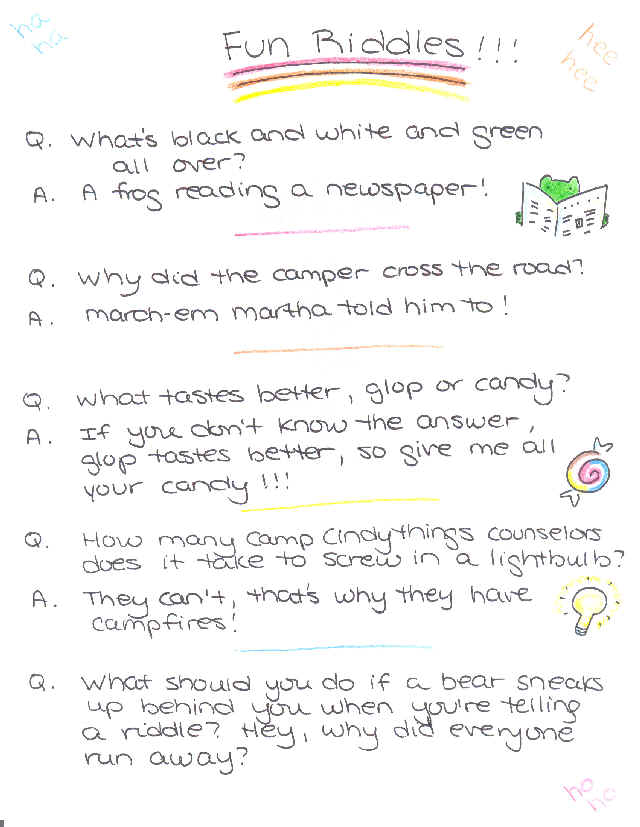 ha
ha
Fun Riddles!!!
hee
hee
Q. What's black and white and green
all over?
A. A frog reading a newspaper!
Q. Why did the camper cross the road?
A. March-em Martha told him to!
Q. What tastes better, glop or candy?
A. If you don't know the answer,
glop tastes better, so give me all
your candy!!!
Q. How many Camp Cindythings counselors
does it take to screw in a lightbulb?
A. They can't, that's why they have
campfires!
Q. What should you do if a bear sneaks
up behind you when you're telling
a riddle? Hey, why did everyone
run away?
ho
ho